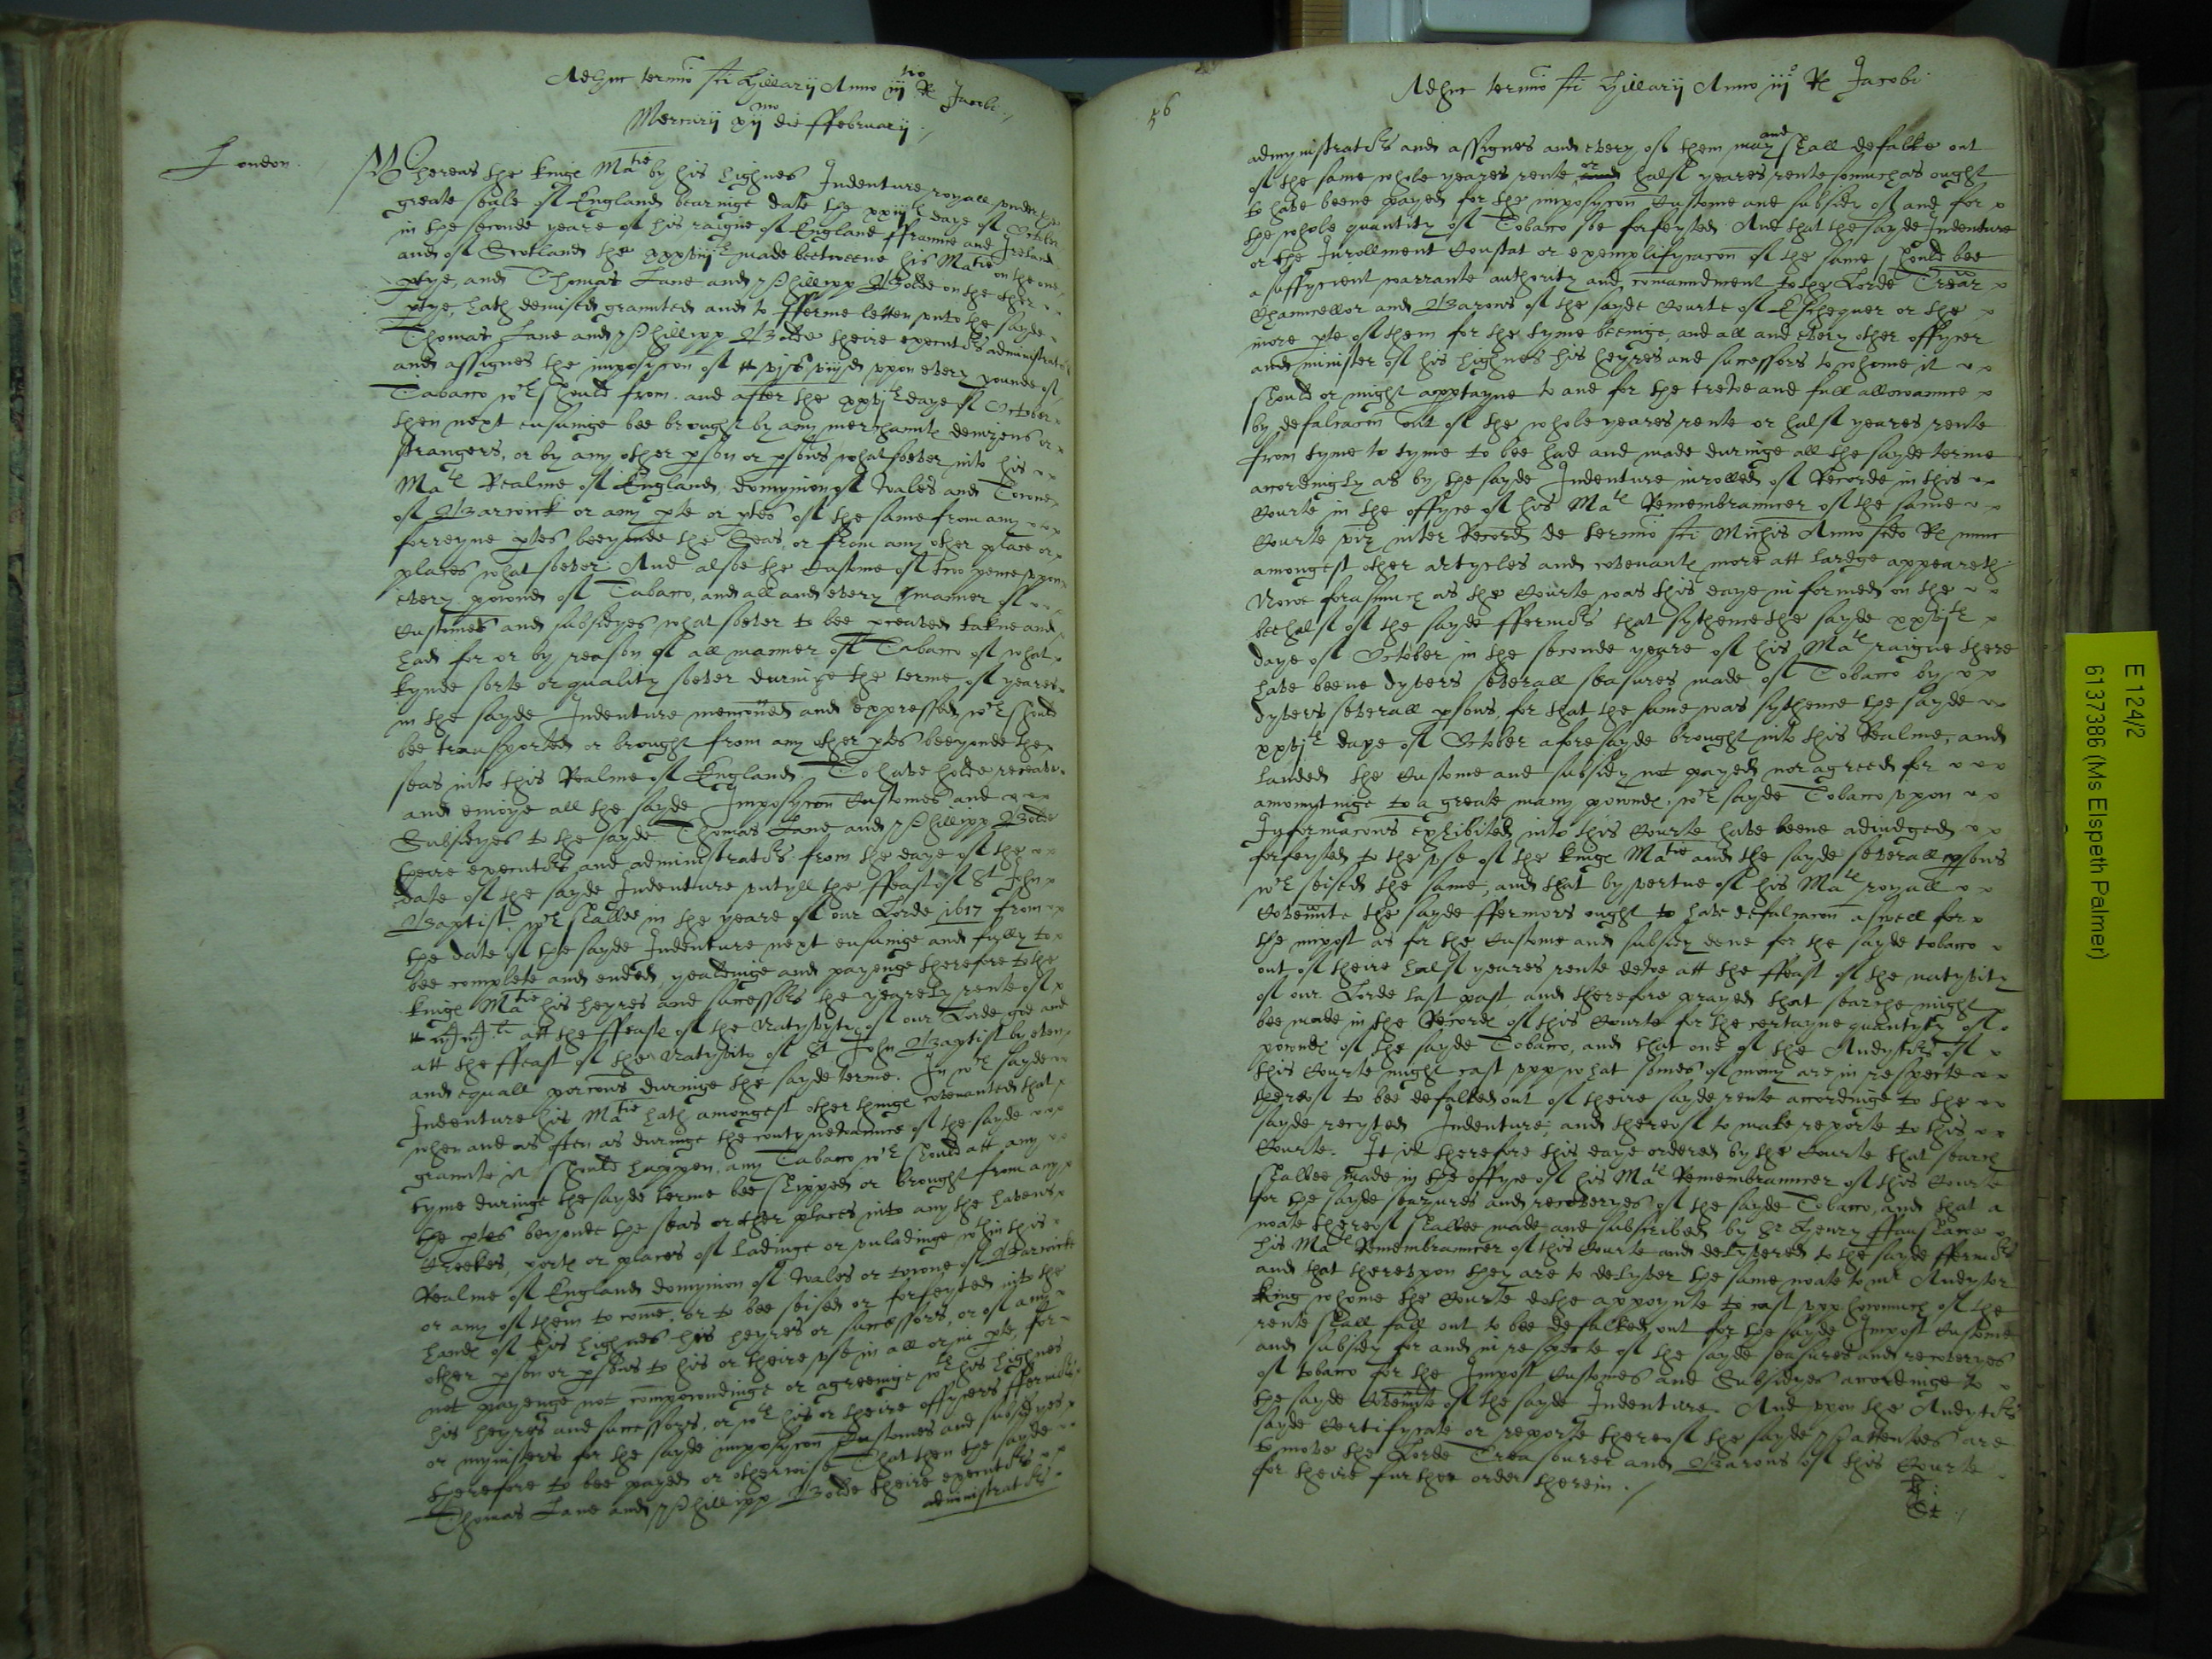 Adhuc termio sci Hillarij Anno iij tio R Jacobi
Mercurij xij mo die ffebruarij
London.
Whereas the kinge Ma tie by his highnes Indenture royall under the
greate seale of England bearinge date the daye of October
in the seconde yeare of his raigne of England ffrannce and Ireland
and of Scotland the made beetweene his Ma tie on the one
ptye, and Thomas Lane and Phillipp Bolde on the other
ptye, hath demised graunted and to fferme letten unto the sayde
Thomas Lane and Phillipp Bolde theire executors administrators
and assignes the imposycon of vjs viijd uppon every pounde of
Tabacco wch should from and after the xxvjth daye of October
then next ensuinge bee brought by any merchannts denizens or
strangers, or by any other pson or psons whatsoever into his
Ma te Realme of England, domynion of Wales and Towne
of Barwick or any pte or ptes of the same from any
forreyne ptes beeyonde the Seas, or from any other place or
places whatsoever And alsoe the Custome of two pence uppon
every pound of Tabacco, and all and every manner of
Customes and subsidyes whatsoever to bee taken and
had for or by reason of all manner of Tabacco of what
kynde sorte or quality soever duringe the terme of yeares
in the sayde Indenture menconed and expressed, wch should
bee transported or brought from any other ptes beeyonde the
seas into this Realme of England, To have holde receave
and enioye all the sayde Imposycon Customes and
Subsidyes to the sayde Thomas Lane and Phillipp Bolde
theire executors and administrators from the daye of the
date of the sayde Indenture untyll the ffeast of St John
Baptist, wch shalbee in the yeare of our Lorde 1617 from
the date of the sayde Indenture next ensuinge and fully to
bee complete and ended, yealdinge and payenge therefore to the
kinge Ma tie his heyres and successors the yearely rente of
att the ffeaste of the Natyvyty of our Lorde god and
att the ffeast of the Natyvity of St John Baptist by even
and equall porcons duringe the sayde terme. In wch sayde
Indenture his Ma tie hath amongest other thinge covenanted that
when and as often as duringe the contynewannce of the sayde
graunte it should happen, any Tabacco wch should att any
tyme duringe the sayde terme bee shipped or brought from any
the ptes beyonde the seas or other places into any the havens
Creekes, ports or places of ladinge or unladinge within this
Realme of England domynion of Wales or towne of Barwicke
or any of them to come, or to bee seised or forfeyted into the
hande of his highnes his heyres or successors, or of any
other pson or psons to his or theire use in all or in pte, for
not payenge not compoundinge or agreeinge wth his highnes
his heyres and successors, or wth his or theire offycers ffermors
or mynisters for the sayde imposycon Customes and subsidyes
therefore to bee payed or otherwise That then the sayde
Thomas Lane and Phillipp Bolde theire executors
administrators
56
Adhuc termio sci Hillarij Anno iij o R Jacobi
admynistrators and assignes and every of them may and shall defalke out
of the same whole yeares rente or halfe yeares rente somuch as ought
to have beene payed for the imposycon Custome and subsidy of and for
the whole quantity of Tobacco soe forfeyted. And that the sayde Indenture
or the Inrollment Constat or exemplifycacon of the same, should bee
a suffycient warrante authority and comanndment to the Lorde Trear
Channcellor and Barons of the sayde Courte of Exchequer or the
more pte of them for the tyme beeinge, and all and every other offycer
and minister of his highnes his heyres and successors to whome it
should or might apptayne to and for the trewe and full allowannce
by defalcacon out of the whole yeares rente or halfe yeares rente
from tyme to tyme to bee had and made duringe all the sayde terme
accordingly as by the sayde Indenture inrolled of Recorde in this
Courte in the offyce of his Ma te Remembrauncer of the same
Courte viz inter Record de termio sci Michis Anno scdo R nunc
amongest other artycles and covenante more att lardge appeareth
Nowe forasmuch as the Courte was this daye informed on the
beehalfe of the sayde ffermors that sythence the sayde xxvjth
daye of October in the seconde yeare of his Ma te raigne there
have beene dyvers severall seasures made of Tobacco by
dyvers severall psons, for that the same was sythence the sayde
xxvjth daye of October aforesayde brought into this Realme, and
landed the Custome and subsidy not payed nor agreed for
amountinge to a greate many pounde, wch sayde Tobacco uppon
Informacons exhibited into this Courte have beene adiudged
forfeyted to the use of the kinge Ma tie and the sayde severall psons
wch seised the same, and that by vertue of his Ma te royall
Covennte the sayde ffermors ought to have defalcacon aswell for
the impost as for the Custome and subsidy dewe for the sayde tobacco
out of theire halfe yeares rente dewe att the ffeast of the natyvity
of our Lorde last past, and therefore prayed that searche might
bee made in the Recorde of this Courte for the certayne quantyty of
pounde of the sayde Tobacco, and that one of the Audytors of
this Courte might cast upp what somes of mony are in respecte
thereof to bee defalked out of theire sayde rente accordinge to the
sayde recyted Indenture, and thereof to make reporte to this
Courte. It is therefore this daye ordered by the Courte that search
shalbee made in the offyce of his Ma te Remembrauncer of this Courte
for the sayde seazures and recoveryes of the sayde Tobacco, and that a
noate thereof shalbee made and subscribed by Sr Henry ffanshawe
his Ma te Remembrauncer of this Courte and delyvered to the sayde ffermors
and that thereuppon they are to delyver the same noate to mr Audytor
King whome the Courte dothe appoynte to cast upp howmuch of the
rente shall fall out to bee defalked out for the sayde Impost Custome
and subsidy for and in respecte of the sayde seasures and recoveryes
of tobacco for the Impost Customes and Subsidyes accordinge to
the sayde Covennte of the sayde Indenture. And uppon the Audytors
sayde Certifycate or reporte thereof the sayde Pattentees are
to move the Lorde Treasourer and Barons of this Courte
for theire further order therein.
E 124/2
6137386 (Ms Elspeth Palmer)